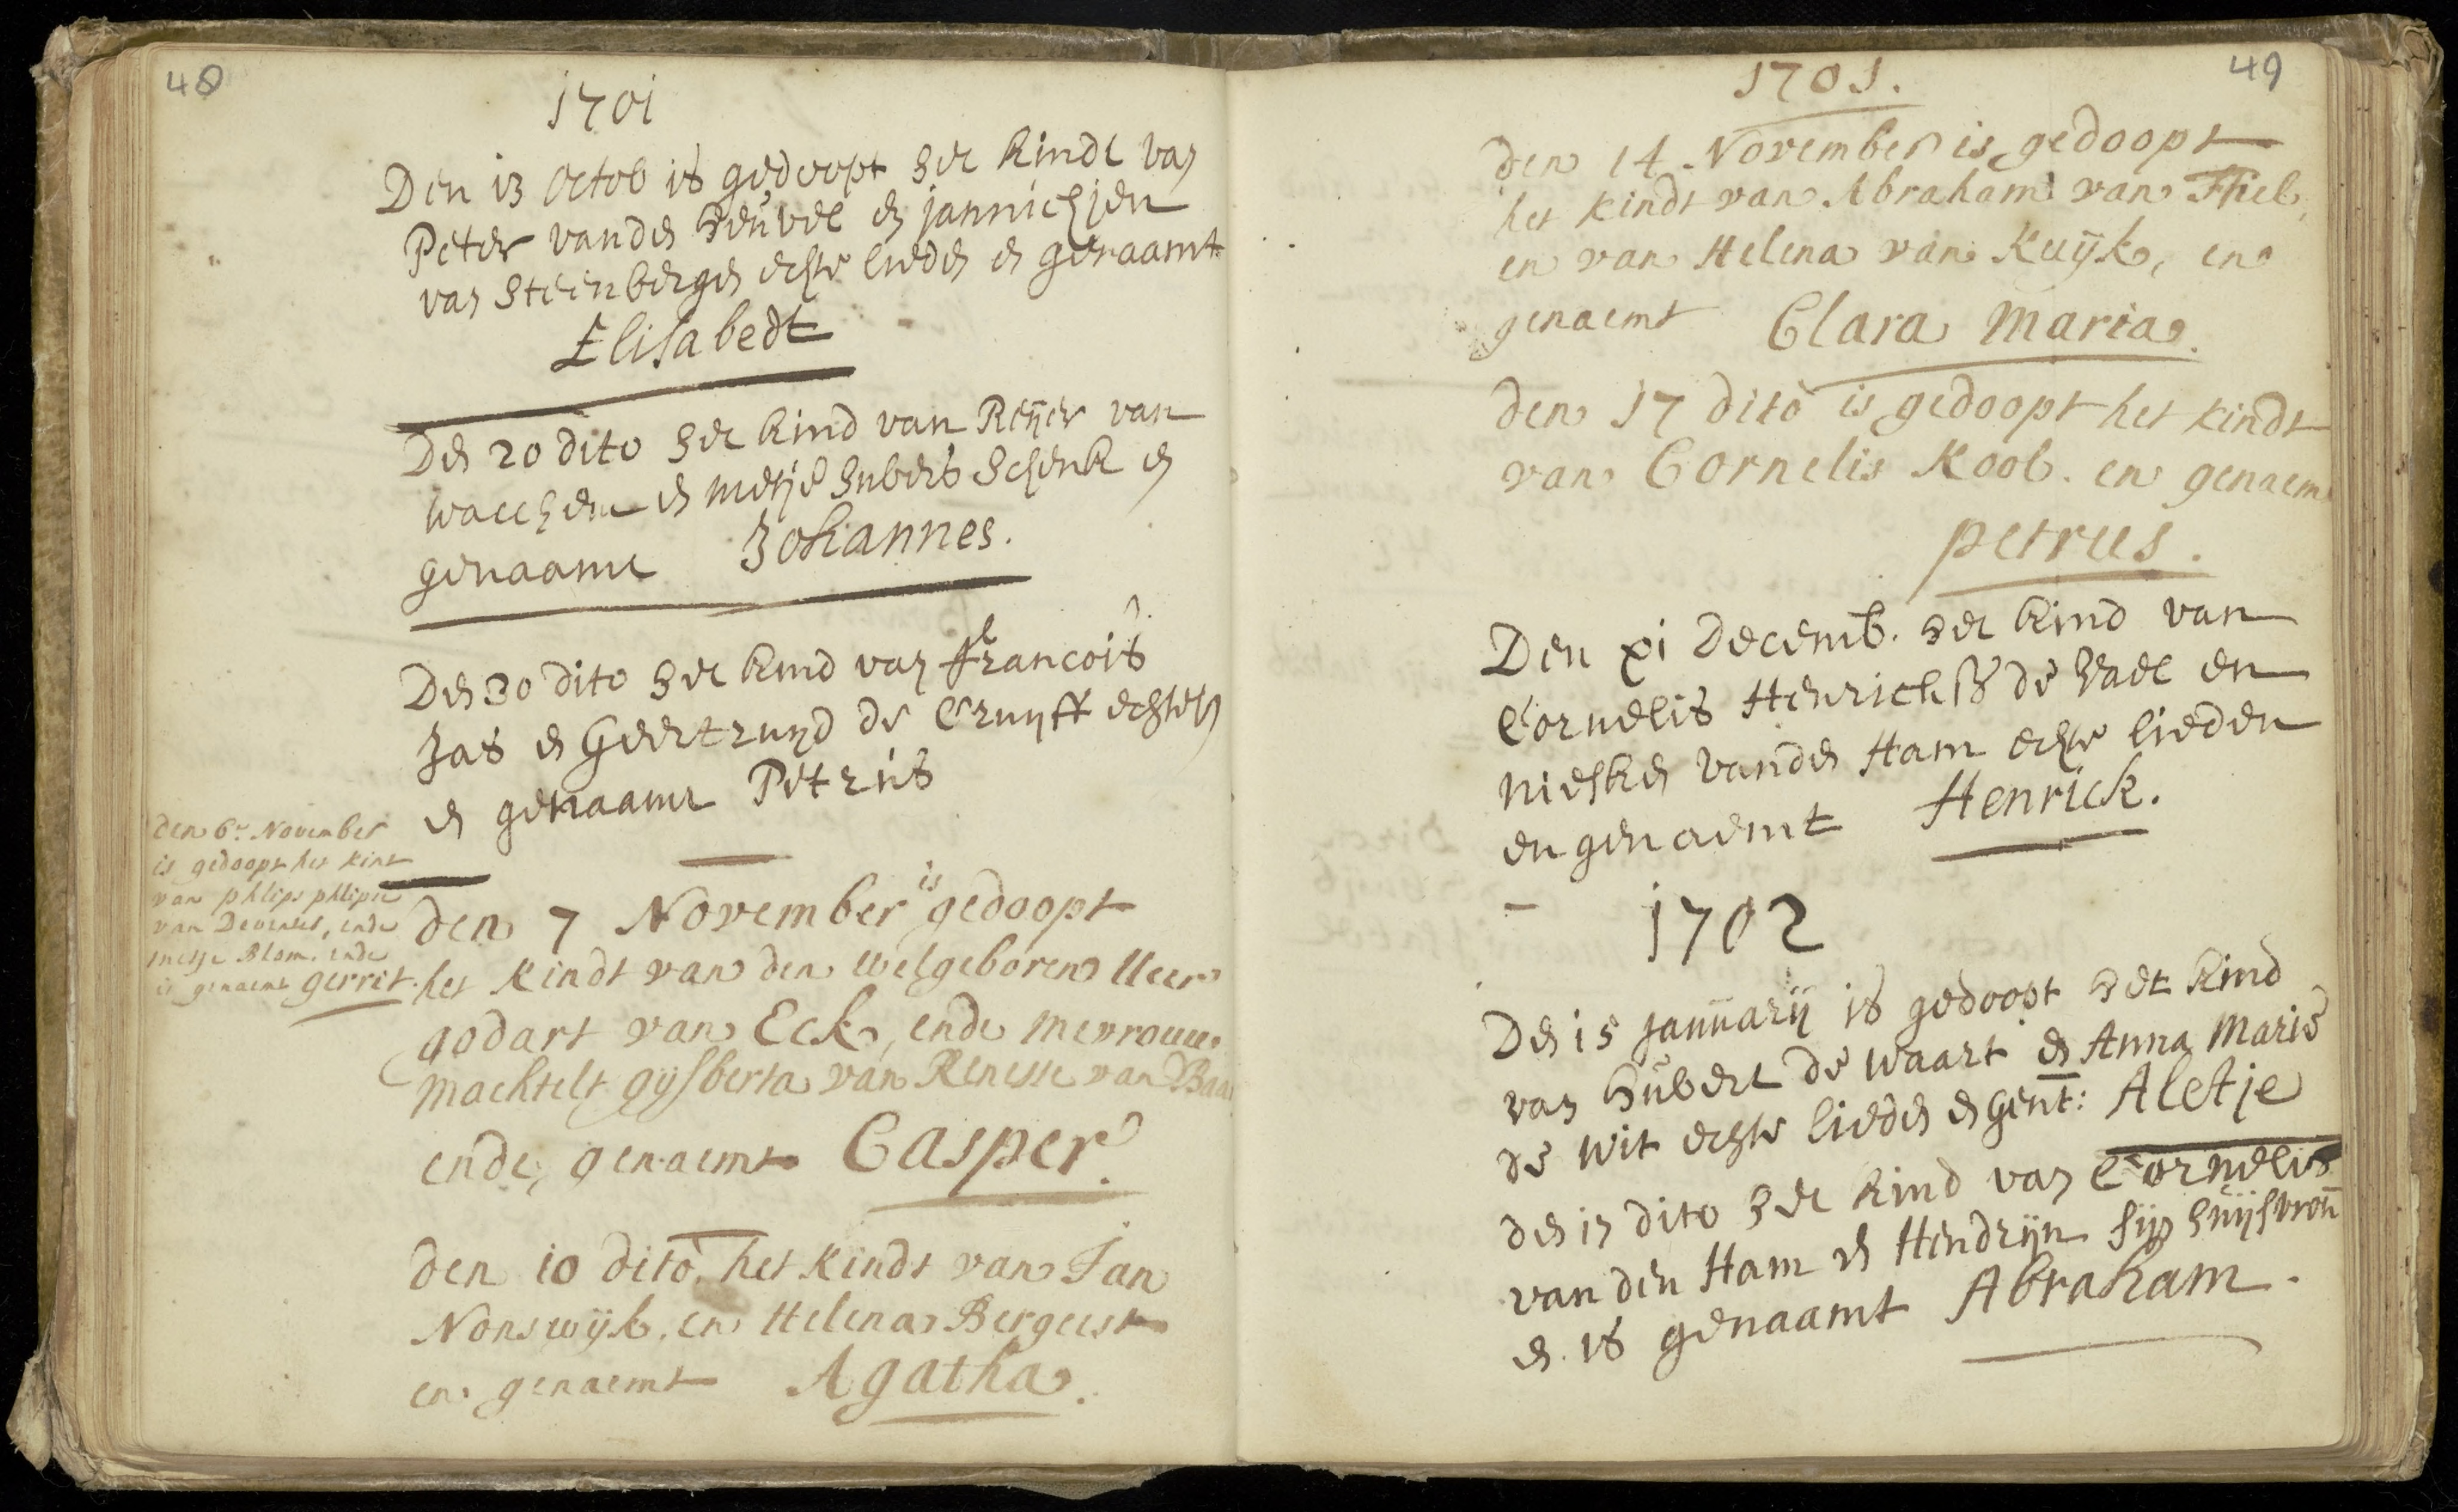 48
1701
Den 13 Octob is gedoopt het kindt van
Peter vanden Heuvel en jannichjen
van Steenbergen echte lieden en genaamt
Elisabedt
Den 20 dito het kind van Reyer van
wacchem en metje huberts Schenk en
genaamt Johannes.
Den 30 dito het kind van francois
Jas en Geertruyd de Cruyff echten
en genaamt Petrus
den 6n November
is gedoopt het kint
van phlips phlipse
van Deventer, ende
metje Blom. ende
is genaemt gerrit.
den 7 November is gedoopt
het kindt van den welgeboren Heer
godart van Eck, ende mevrouw
machtelt gysberta van Renesse van Baar
ende, genaemt Casper.
den 10 dito, het kindt van Jan
Nonswijk, en Helena Bergeest
en genaemt Agatha.
49
1701.
den 14 November is gedoopt
het kindt van Abraham van Thiel,
en van Helena van Kuijk, en
genaemt Clara Maria.
den 17 dito is gedoopt het kindt
van Cornelis Kool. en genaem
petrus.
Den xi Decemb. het kind van
Cornelis Henrichss de Vael en
niesken vanden Ham echte lieden
en genaemt Henrick.
1702
Den 15 januarij is gedoopt het kind
van Hubert de Waart en Anna Marie
de Wit echte lieden en gent: Aletje
den 17 dito het kind van Cornelis
van den Ham en Hendrijn sijn huijsvrou
en is genaamt Abraham.